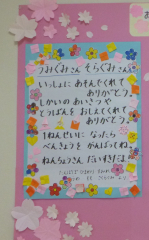 つみくみさん そらくみさん
いっしょに あそんでくれて
ありがとう。
しかいの あいさつや
とうばんを おしえてくれて
ありがとう。
1ねんせいに なったら
べんきょうを がんばってね。
ねんちょうさん だいすきだよ。